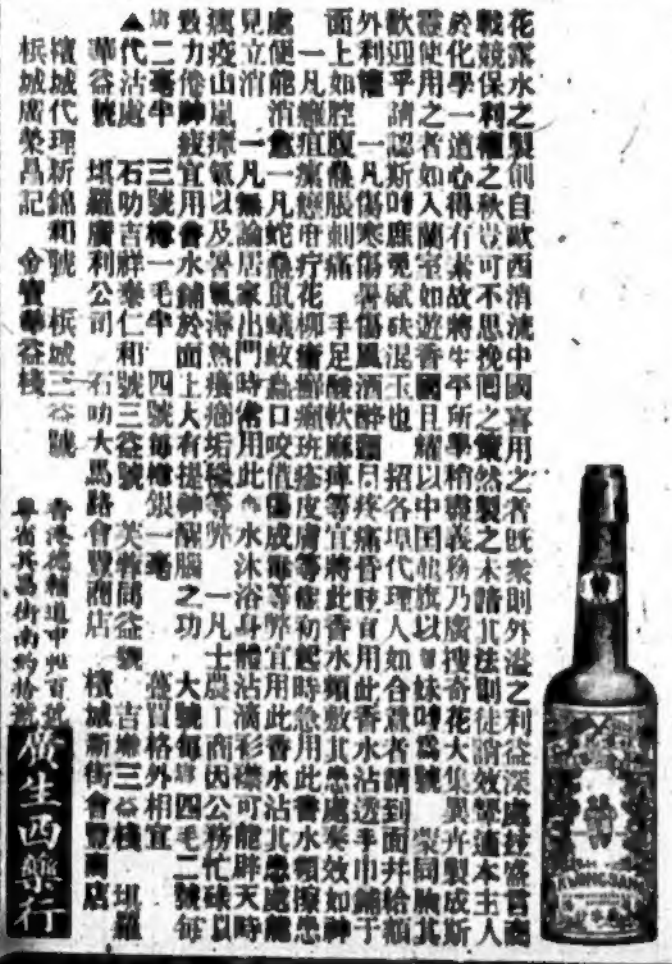 花露水之製創自歐西消流中國喜用之者既衆則外溢之利益深處茲盛言商
戰競保利權之秋豈可不思挽回之策然製之未諳其法則徒誚效顰進本主人
於化學一道心得有素故將生平所學稍盡義務乃廣搜奇花大集異卉製成斯
靈使用之者如入蘭室如遊香國且耀以中国龍旗以妹嘜為號 蒙同胞其
歡迎乎請認斯嘜庶免碔砆混玉也 招各埠代理人如合意者請到面并給額
外利權 一凡傷寒傷暑傷風酒醉頭眉疼痛昏眩宜用此香水沾透手巾鋪于
面上如腔腹飽脹刺痛 手足酸軟麻痺等宜將此香水頻敷其患處奏效如神
一凡癰疽瘡癬疔花柳瘡癬瘌班痧皮膚等症初起時急用此香水頻擦患
處便能消愈 一凡蛇蟲鼠蟻蚊蟲口咬值傷成毒等弊宜用此香水沾其患處能
見立消 一凡無論居家出門時常用此香水沐浴身體沾滴衫襟可能辟天時
癘疫山嵐瘴氣以及暑氣溽熱癢癤垢穢等弊 一凡士農工商因公務忙碌以
致力倦神疲宜用香水鋪於面上大有提神醒腦之功 大號每罇四毛二號每
罇二毫半 三號樽一毛半 四號每樽銀一毫 躉買格外相宜
▲代沽處 石叻吉祥泰仁和號三益號 芙蓉同益號 吉隆三益棧 埧羅
華益號 埧羅廣利公司 石叻大馬路會豐商店 檳城新街會豐商店
檳城代理新錦和號 檳城三谷號
梹城廣榮昌記 金寶華益棧
香港德輔道中
粤省其昌街南約拾號
廣生西藥行
KWONG SANG